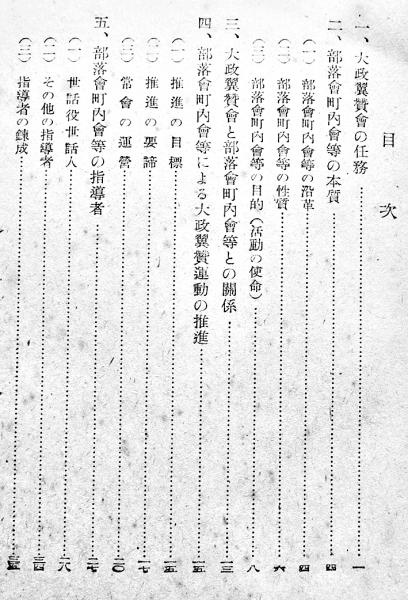 目次
一、大政翼賛會の任務…………一
二、部落會町內會等の本質…………四
(一) 部落會町內會等の沿革…………四
(二) 部落會町內會等の性質…………六
(三) 部落會町內會等の目的(活動の使命)…………八
三、大政翼賛會と部落會町內會等との關係…………一三
四、部落會町內會等による大政翼賛運動の推進…………一五
(一) 推進の目標…………一五
(二) 推進の要諦…………一七
(三) 常會の運營…………二〇
五、部落會町內會等の指導者…………二七
(一) 世話役世話人…………二八
(二) その他の指導者…………三四
(三) 指導者の鍊成…………三五